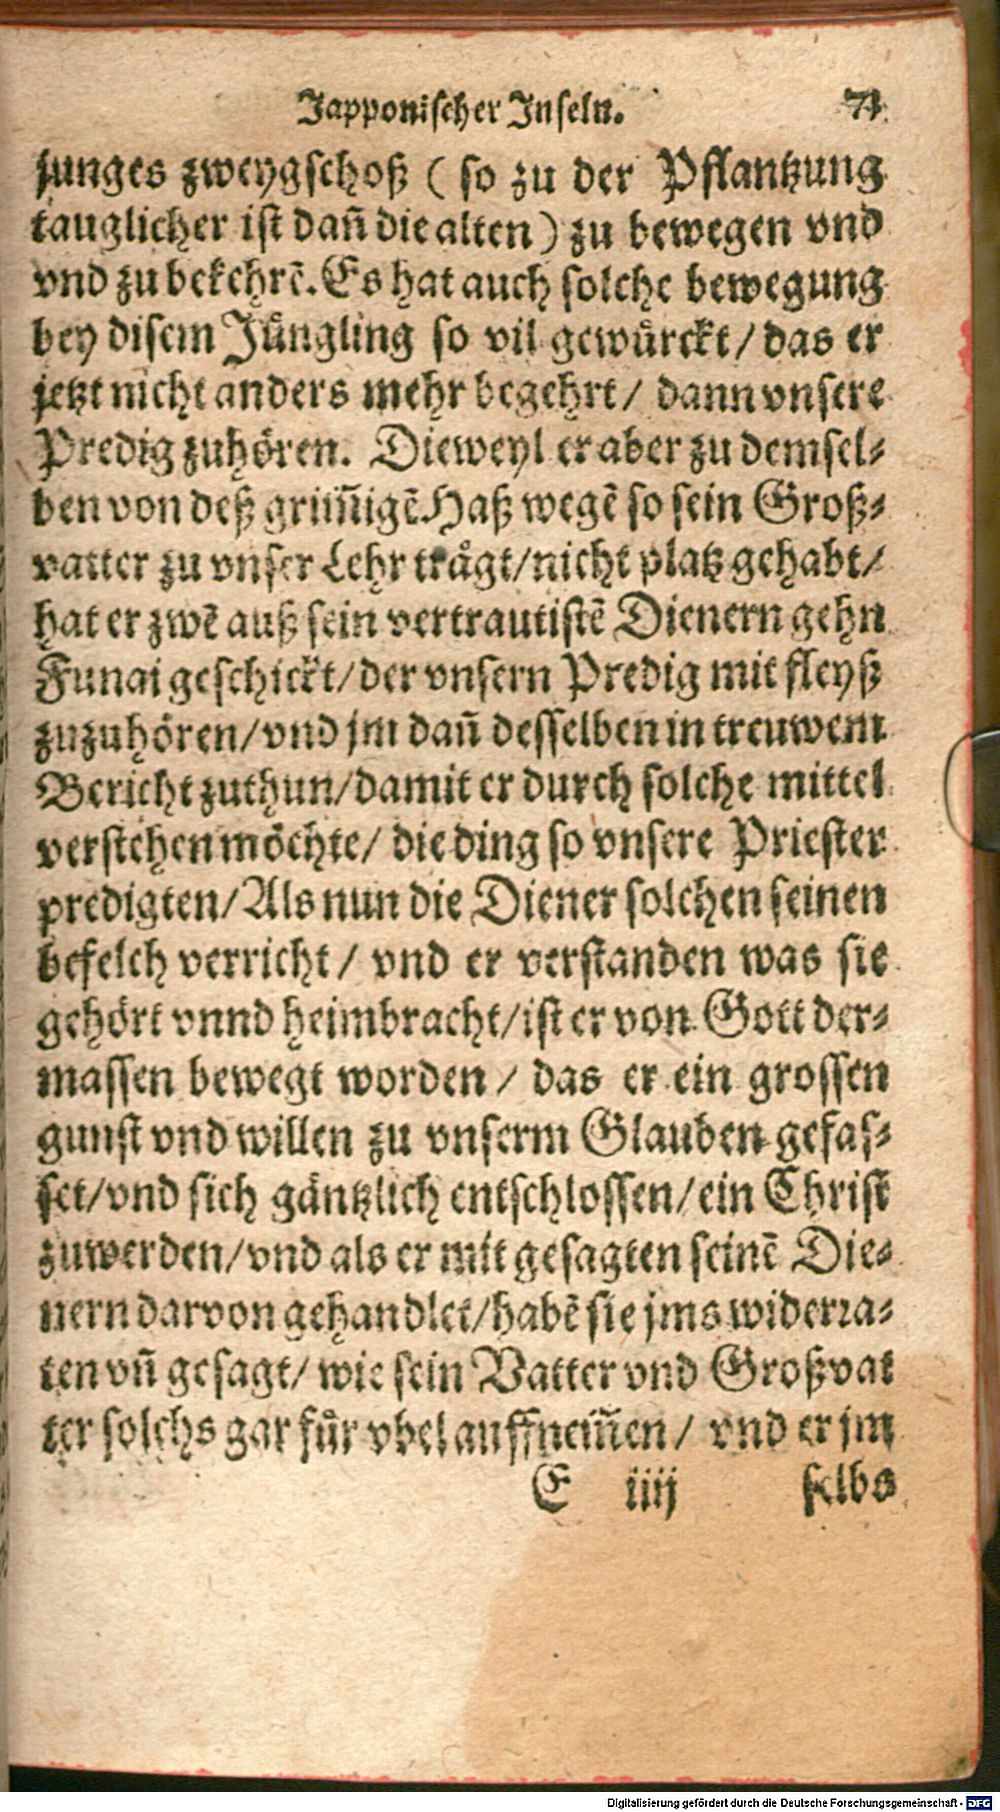 Japponischer Inseln. 71
junges zweygschoß ( so zu der Pflantzung
tauglicher ist dañ die alten ) zu bewegen vnd
vnd zu bekehrē. Es hat auch solche bewegung
bey disem Jüngling so vil gewürckt / das er
jetzt nicht anders mehr begehrt / dann vnsere
Predig zuhören. Dieweyl er aber zu demsel-
ben von deß grim̄igē Haß wegē so sein Groß-
vatter zu vnser Lehr trågt / nicht platz gehabt /
hat er zwē auß sein vertrautistē Dienern gehn
Funai geschickt / der vnsern Predig mit fleyß
zuzuhören / vnd jm dañ desselben in treuwem
Bericht zuthun / damit er durch solche mittel
verstehen möchte / die ding so vnsere Priester
predigten / Als nun die Diener solchen seinen
befelch verricht / vnd er verstanden was sie
gehört vnnd heimbracht / ist er von Gott der-
massen bewegt worden / das er ein grossen
gunst vnd willen zu vnserm Glauben gefas-
set / vnd sich gäntzlich entschlossen / ein Christ
zuwerden / vnd als er mit gesagten seinē Die-
nern darvon gehandlet / habē sie jms widerra-
ten vñ gesagt / wie sein Vatter vnd Großvat
ter solchs gar für vbel auffnem̄en / vnd er jm
E iiij selbs
Digitalisierung gefördert durch die Deutsche Forschungsgemeinschaft - DFG